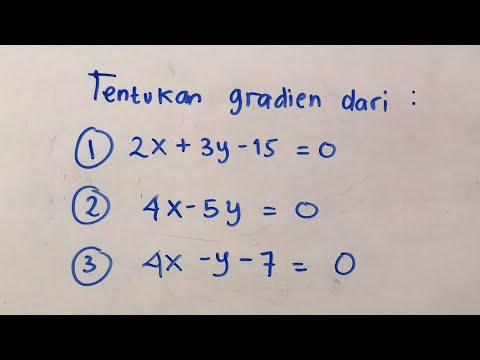 Tentukan gradien dari :
1 2x + 3y - 15 = 0
2 4x - 5y = 0
3 4x - y - 7 = 0